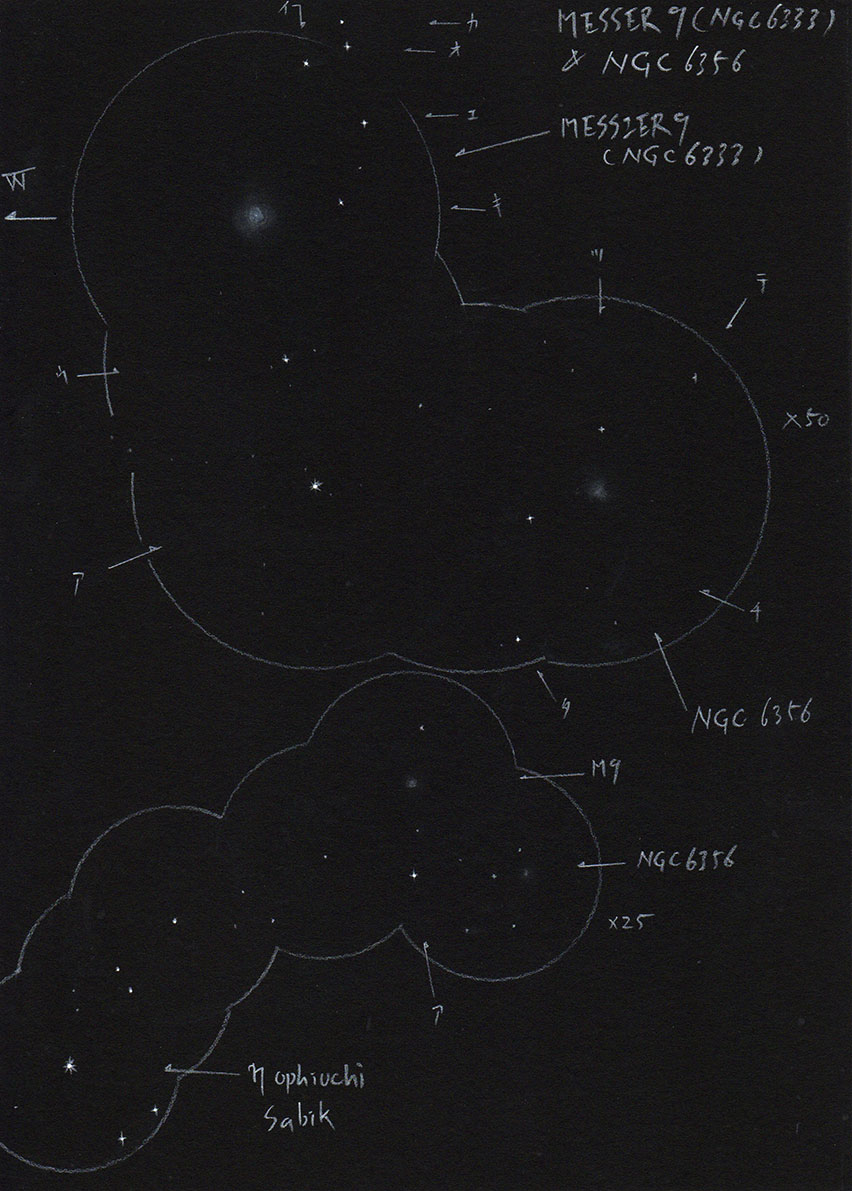 イ
MESSER 9 (NGC 6333)
& NGC 6356
カ
オ
エ
MESSIER 9
(NGC 6333)
W
キ
ツ
テ
ウ
×50
ア
チ
タ
NGC 6356
M9
NGC 6356
×25
ア
η ophiuchi
Sabik